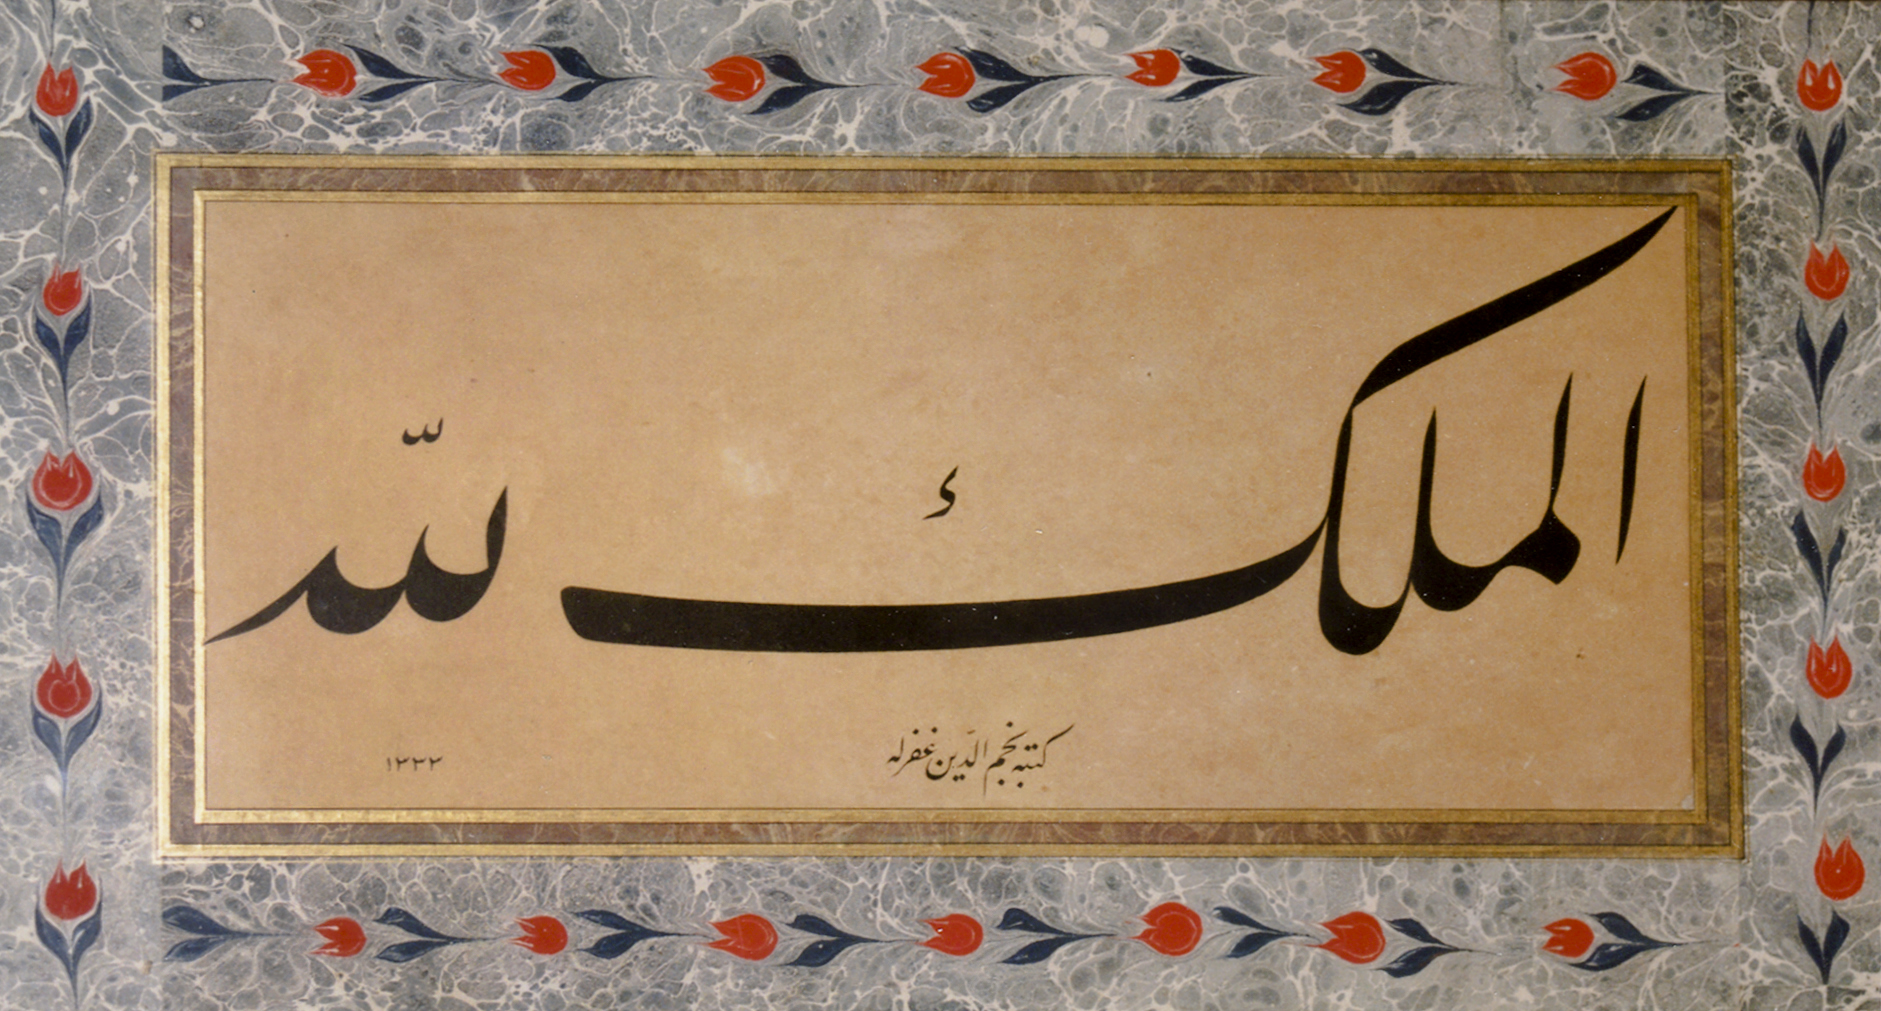 الملك لله
كتبه نجم الدّين غفرله
١٣٣٣